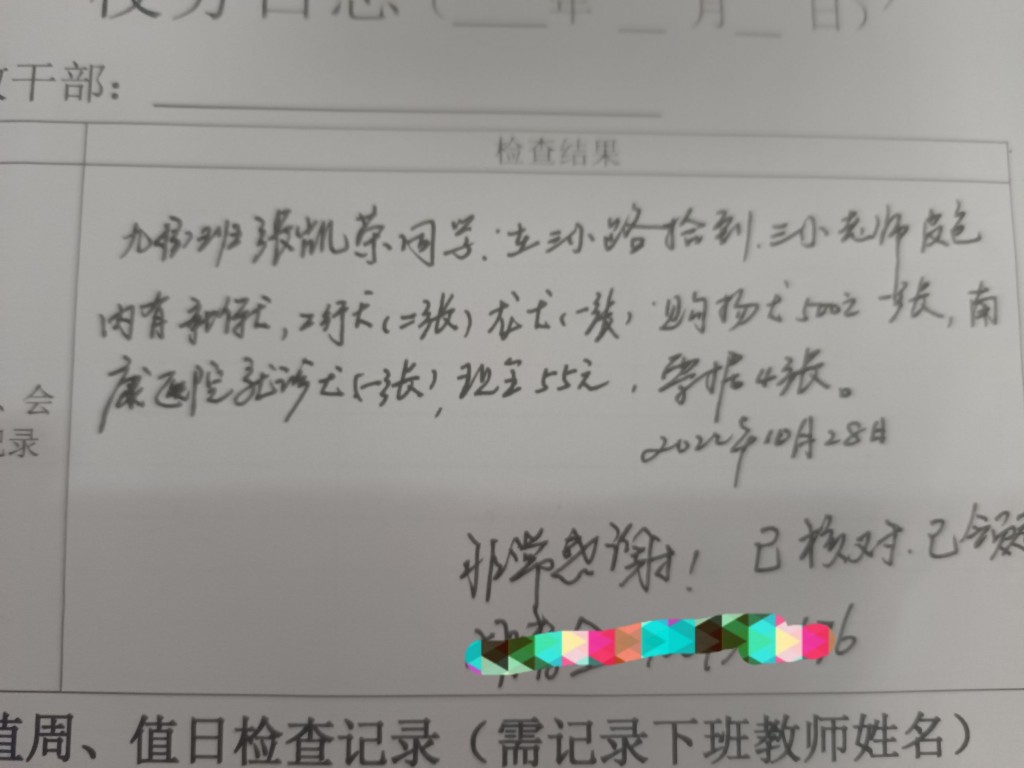 校务日志（____年 __ 月__ 日）
干部：
检查结果
九 班张凯荣同学.在三小路拾到.三小老师皮包
内有 ，工行卡（二张）龙卡（一张）购物卡500元一张，南
康医院就诊卡（一张），现金55元，票据4张。
2022年10月28日
、会
记录
非常感谢！ 已核对.已领
76
值周、值日检查记录（需记录下班教师姓名）